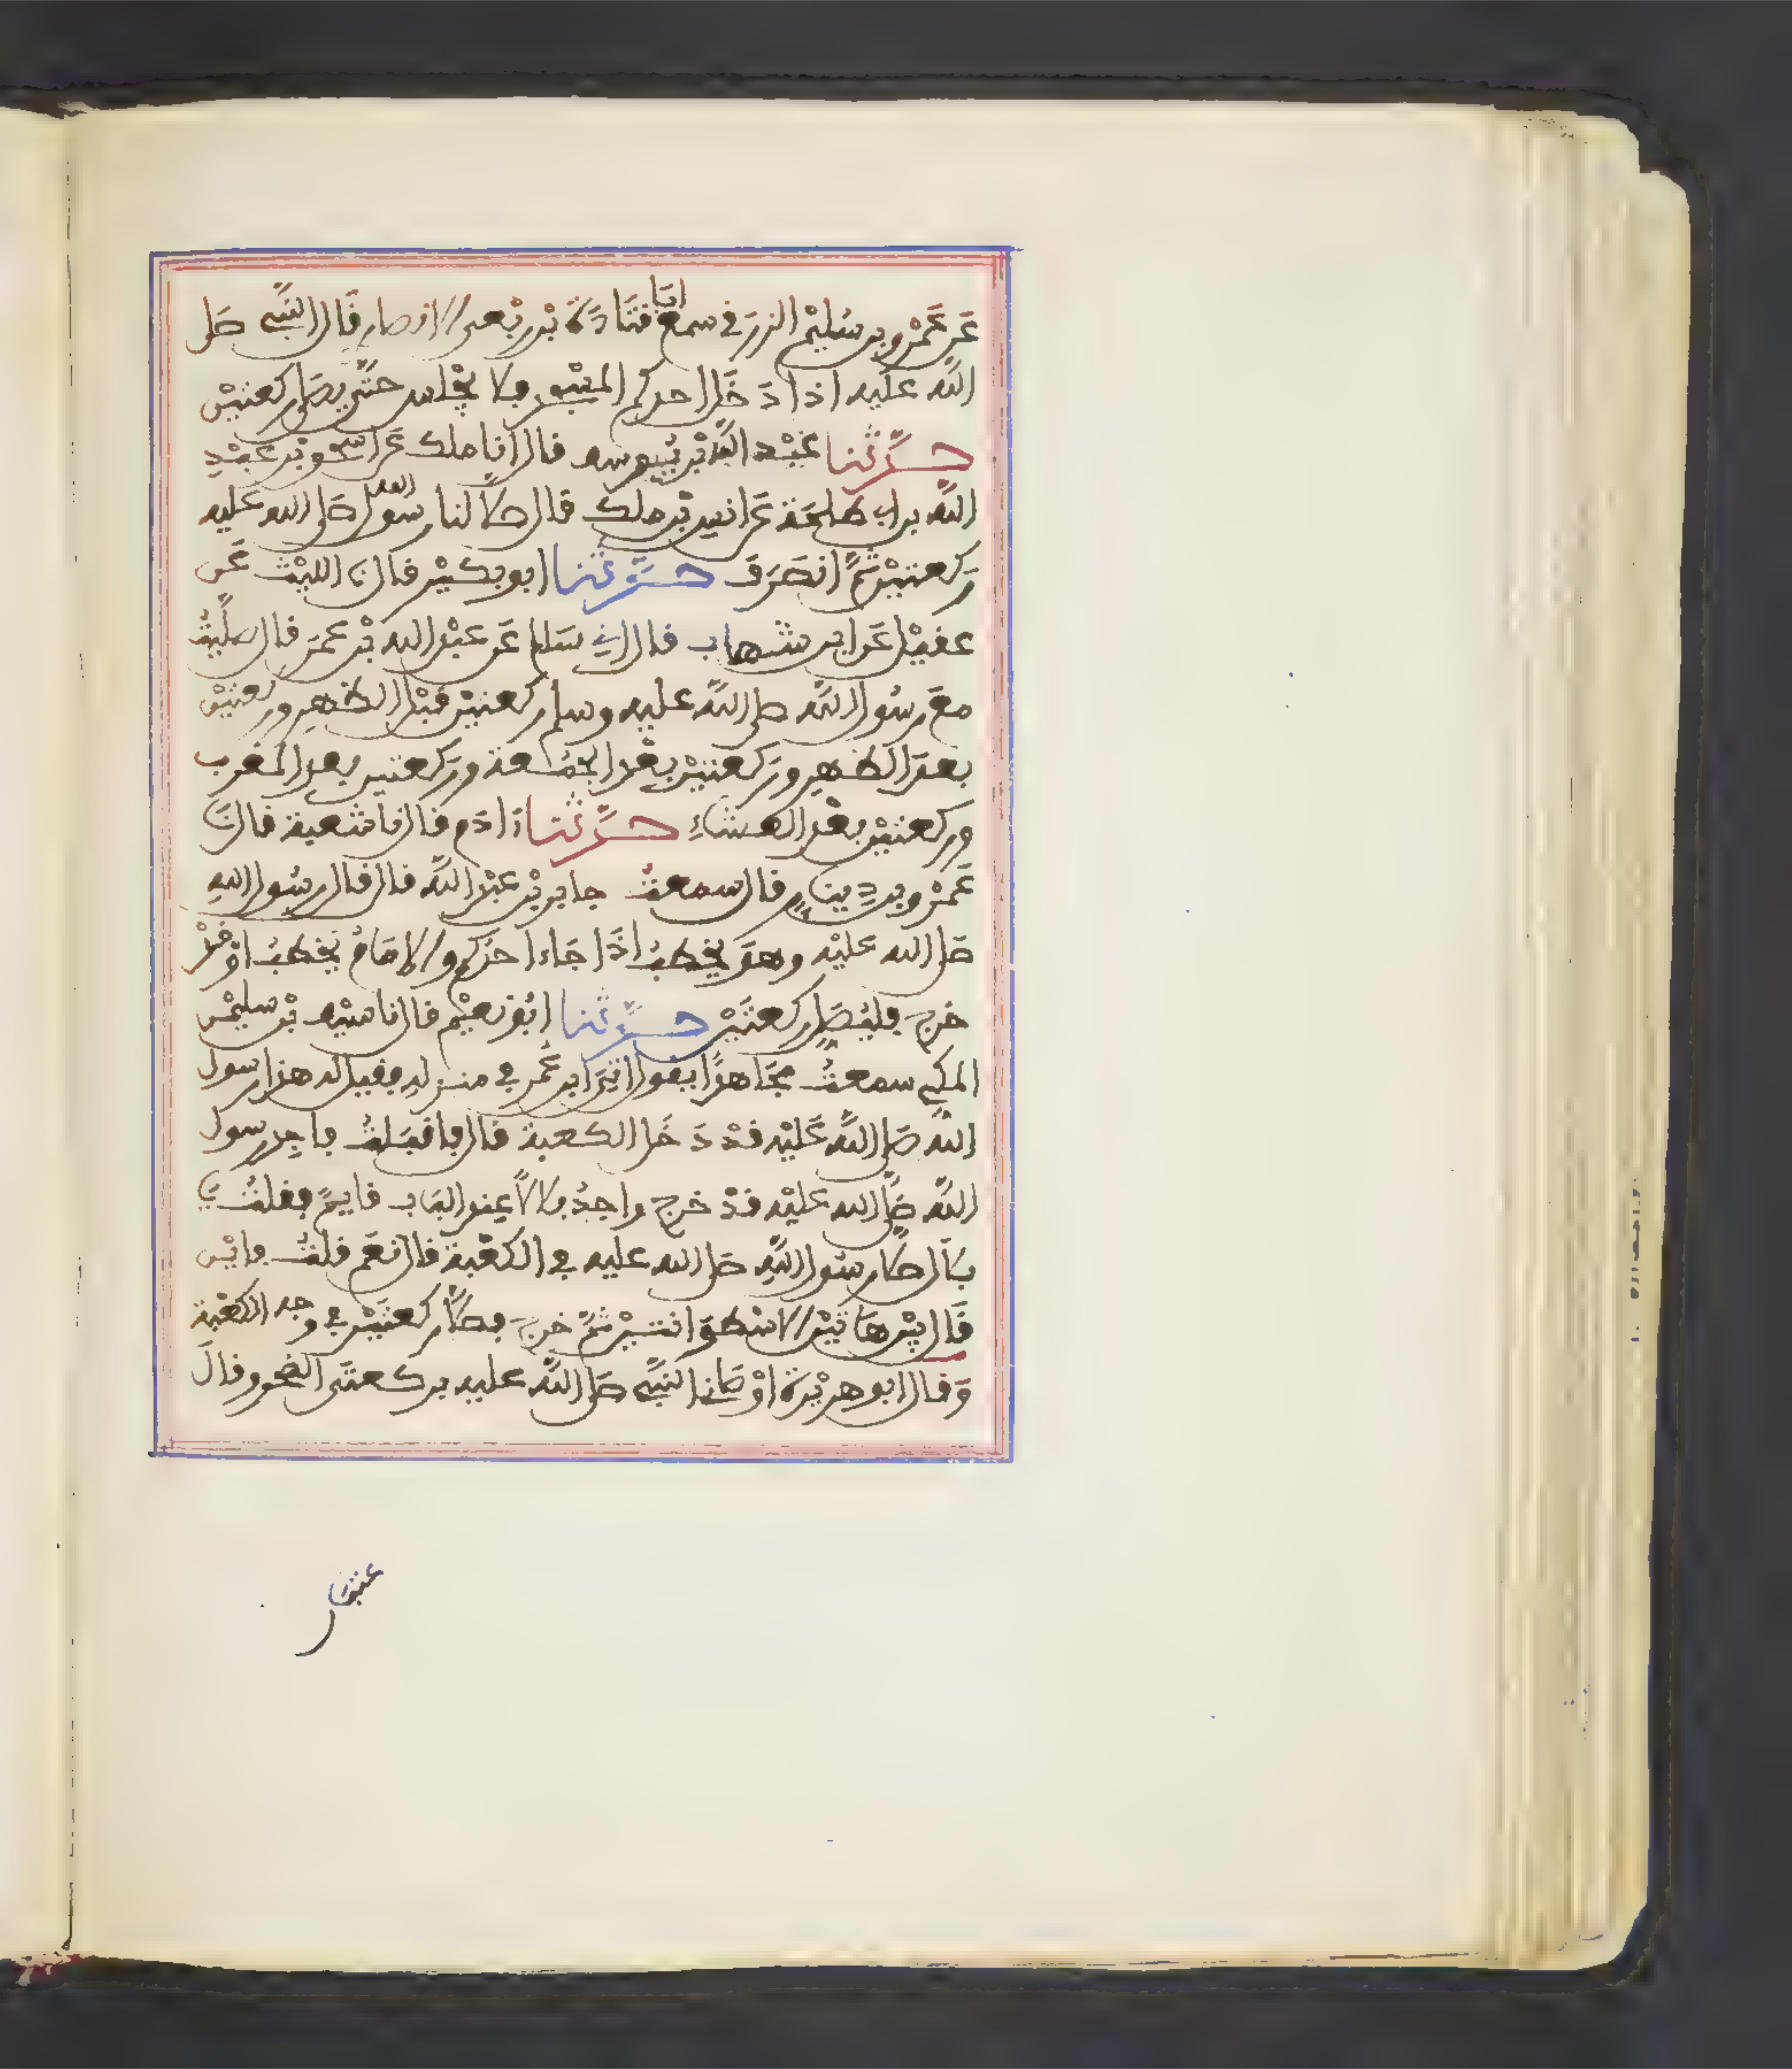 عَن عَمْرو بن سُلَيْم الزرَقي سمع ابَا قتَادَةَ بْن رِبْعي الانصارِ قَال النبيّ صَلى
اللّه عليه اذا دَخَل احدكم المسْجد فلا يجْلس حتّى يصَلي ركعتيْن
حدّثنا عبْد اللّه بْن يُوسف قال انا ملك عَن اسحٰق بْن عبْدِ
اللّه بن ابي طلحَة عَن انس بْن ملك قال صلّا لنا رسُول الله صَلى الله عليه
رَكعتيْن ثمّ انصَرَف حدّثنا ابو بكيْر قال نا الليْث عَن
عقيْل عَن ابن شهاب قال اني سَالم عَن عبْد الله بْن عمَر قال صلّيْتُ
معَ رسُول اللّه صلى اللّه عليه وسلم ركعتيْن قبْل الظهرِ وركعتيْن
بعدَ الظهرِ ورَكعتيْن بعْد الجمُعة ورَكعتين بعد المغرب
وركعتيْن بعْد العشاءِ حدّثنا ءَادَم قال نا شعبة قال نَا
عَمْرو بن دِينَارٍ قال سمعتُ جابر بْن عبْد اللّه قال قال رسُول اللهِ
صَلى الله عليْه وهوَ يخطبُ اذَا جَاء احدُكم والامَامُ يخطبُ اوْ قدْ
خرج فليُصَلِّ ركعتَيْن حدّثنا ابُو نعيْم قال نا سيْف بْن سليمْن
المكي سمعتُ مجَاهدًا يقول اتِيَ ابن عُمر في منزلهِ فقيل له هذا رسول
اللّه صَلى اللّه عَليْه قدْ دَخَل الكعبة قال فاقبَلتُ فاجِد رسول
اللّه صَلّى الله عليْه قدْ خرج واجدُ بلالاً عِند البَاب قايمً فقلتُ يَا
بلَال صلّا رسُول اللّهِ صَلى الله عليه في الكعْبة قال نعَم قلتُ فايْن
قَال بيْن هَاتيْن الاسْطوَانتيْن ثمّ خرج فصلّا ركعتَيْن في وجه الكعْبة
وَقال ابو هريْرة اوْصَانا النبيّ صَلى اللّه عليه بركعتَي الضحى وقالَ
عتبَان